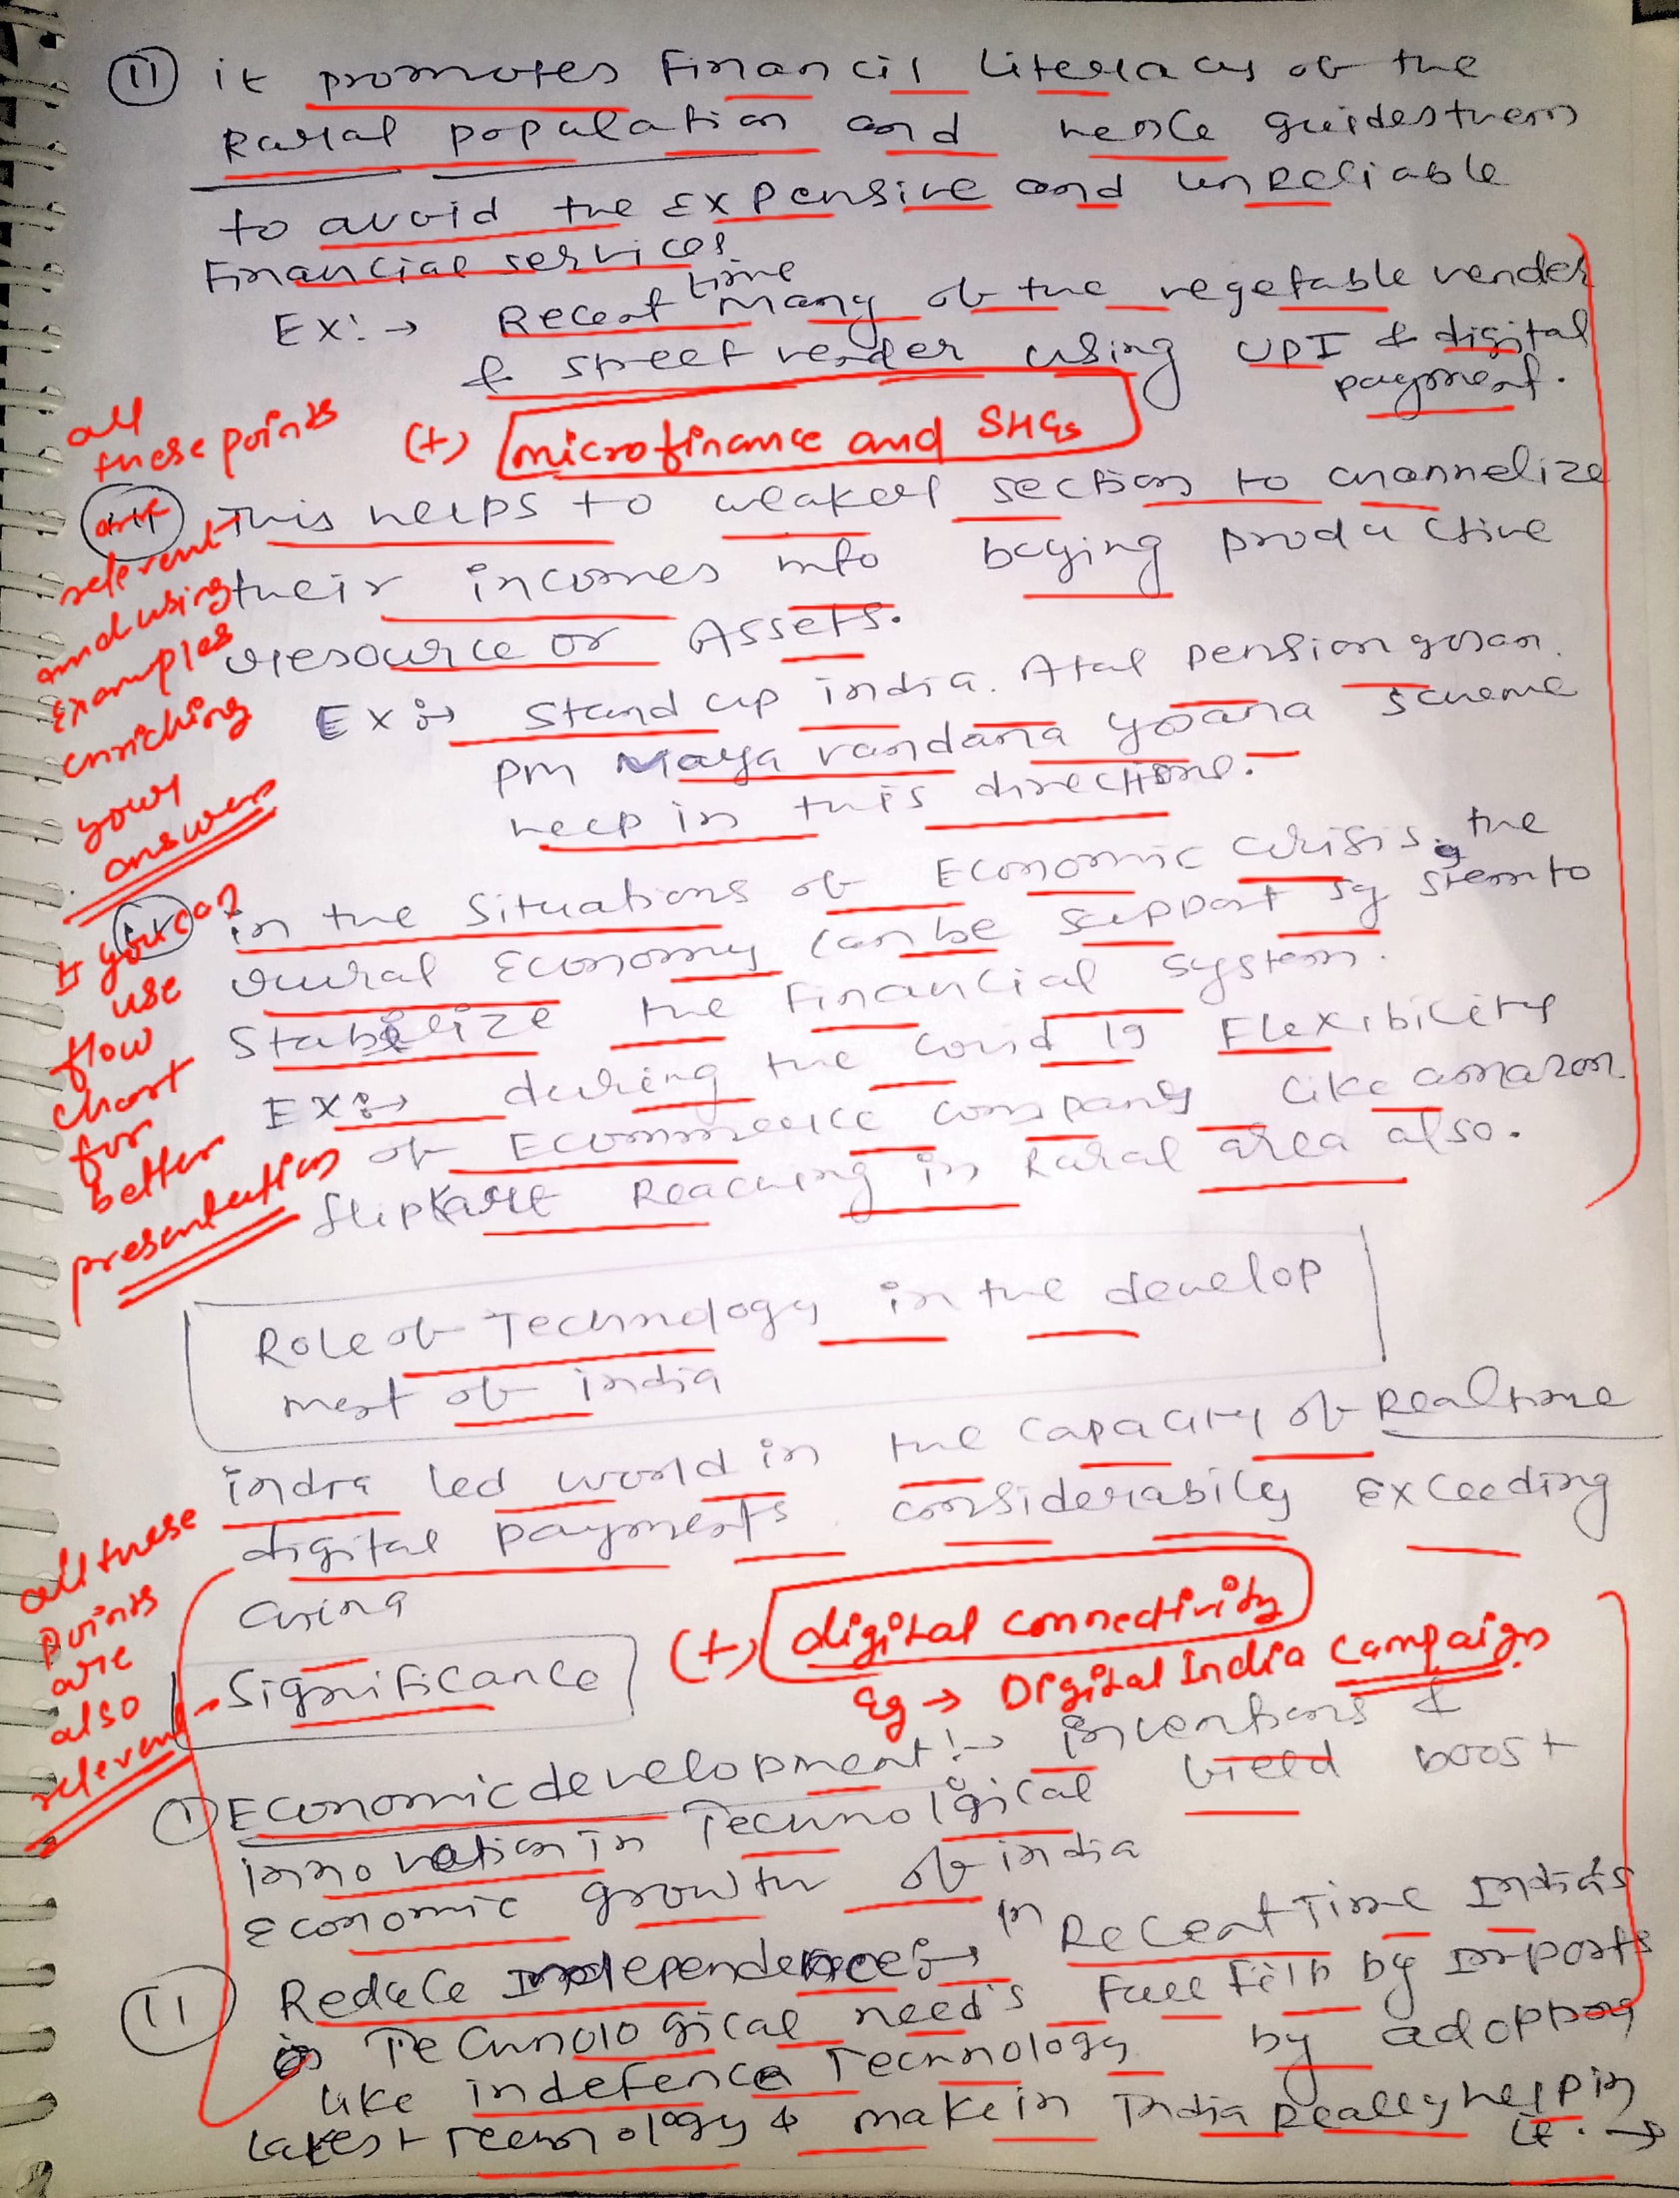 (11) it promotes Financil Literacy of the
Rural population and hence guides them
to avoid the Expensive and unreliable
Financial services
Ex:→ Recent time many of the vegetable vender
& street vender using UPI & digital
payment.
(+) microfinance and SHGs
all
these points
are
relevent
and using
Examples
enriching
your
answer
This helps to weaker section to channelize
their incomes into buying productive
resource or Assets.
Ex:→ Stand up india. Atal pension yojan.
pm Matya vandana yojana scheme
help in this directions.
If you can
use
flow
chart
for
better
presentation
(iv) in the Situations of Economic crisis, the
rural Economy can be support system to
Stabilize the Financial system.
Ex:→ during the Covid 19 Flexibility
of Ecommerce company like amazon
flipkart Reaching in Rural area also.
Role of Technology in the develop
ment of india
india led world in the capacity of Realtime
digital payments considerabily Exceeding
China
all these
points
are
also
relevent
(+) digital connectivity
Eg → Digital India Campaign
Significance
(1) Economic development:→ inventions &
innovation in Technological field boost
Economic growth of india
(11) Reduce Independence:→ in Recent Time India's
Technological need's full filh by imports
like in defence Technology by adopting
latest Technology & make in India Really help in
it. →